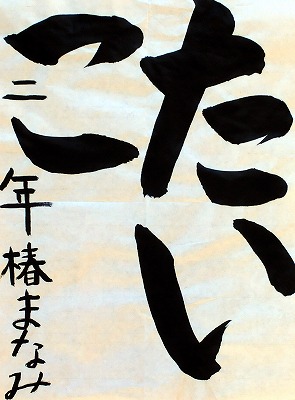 たい
こ
二年椿まなみ